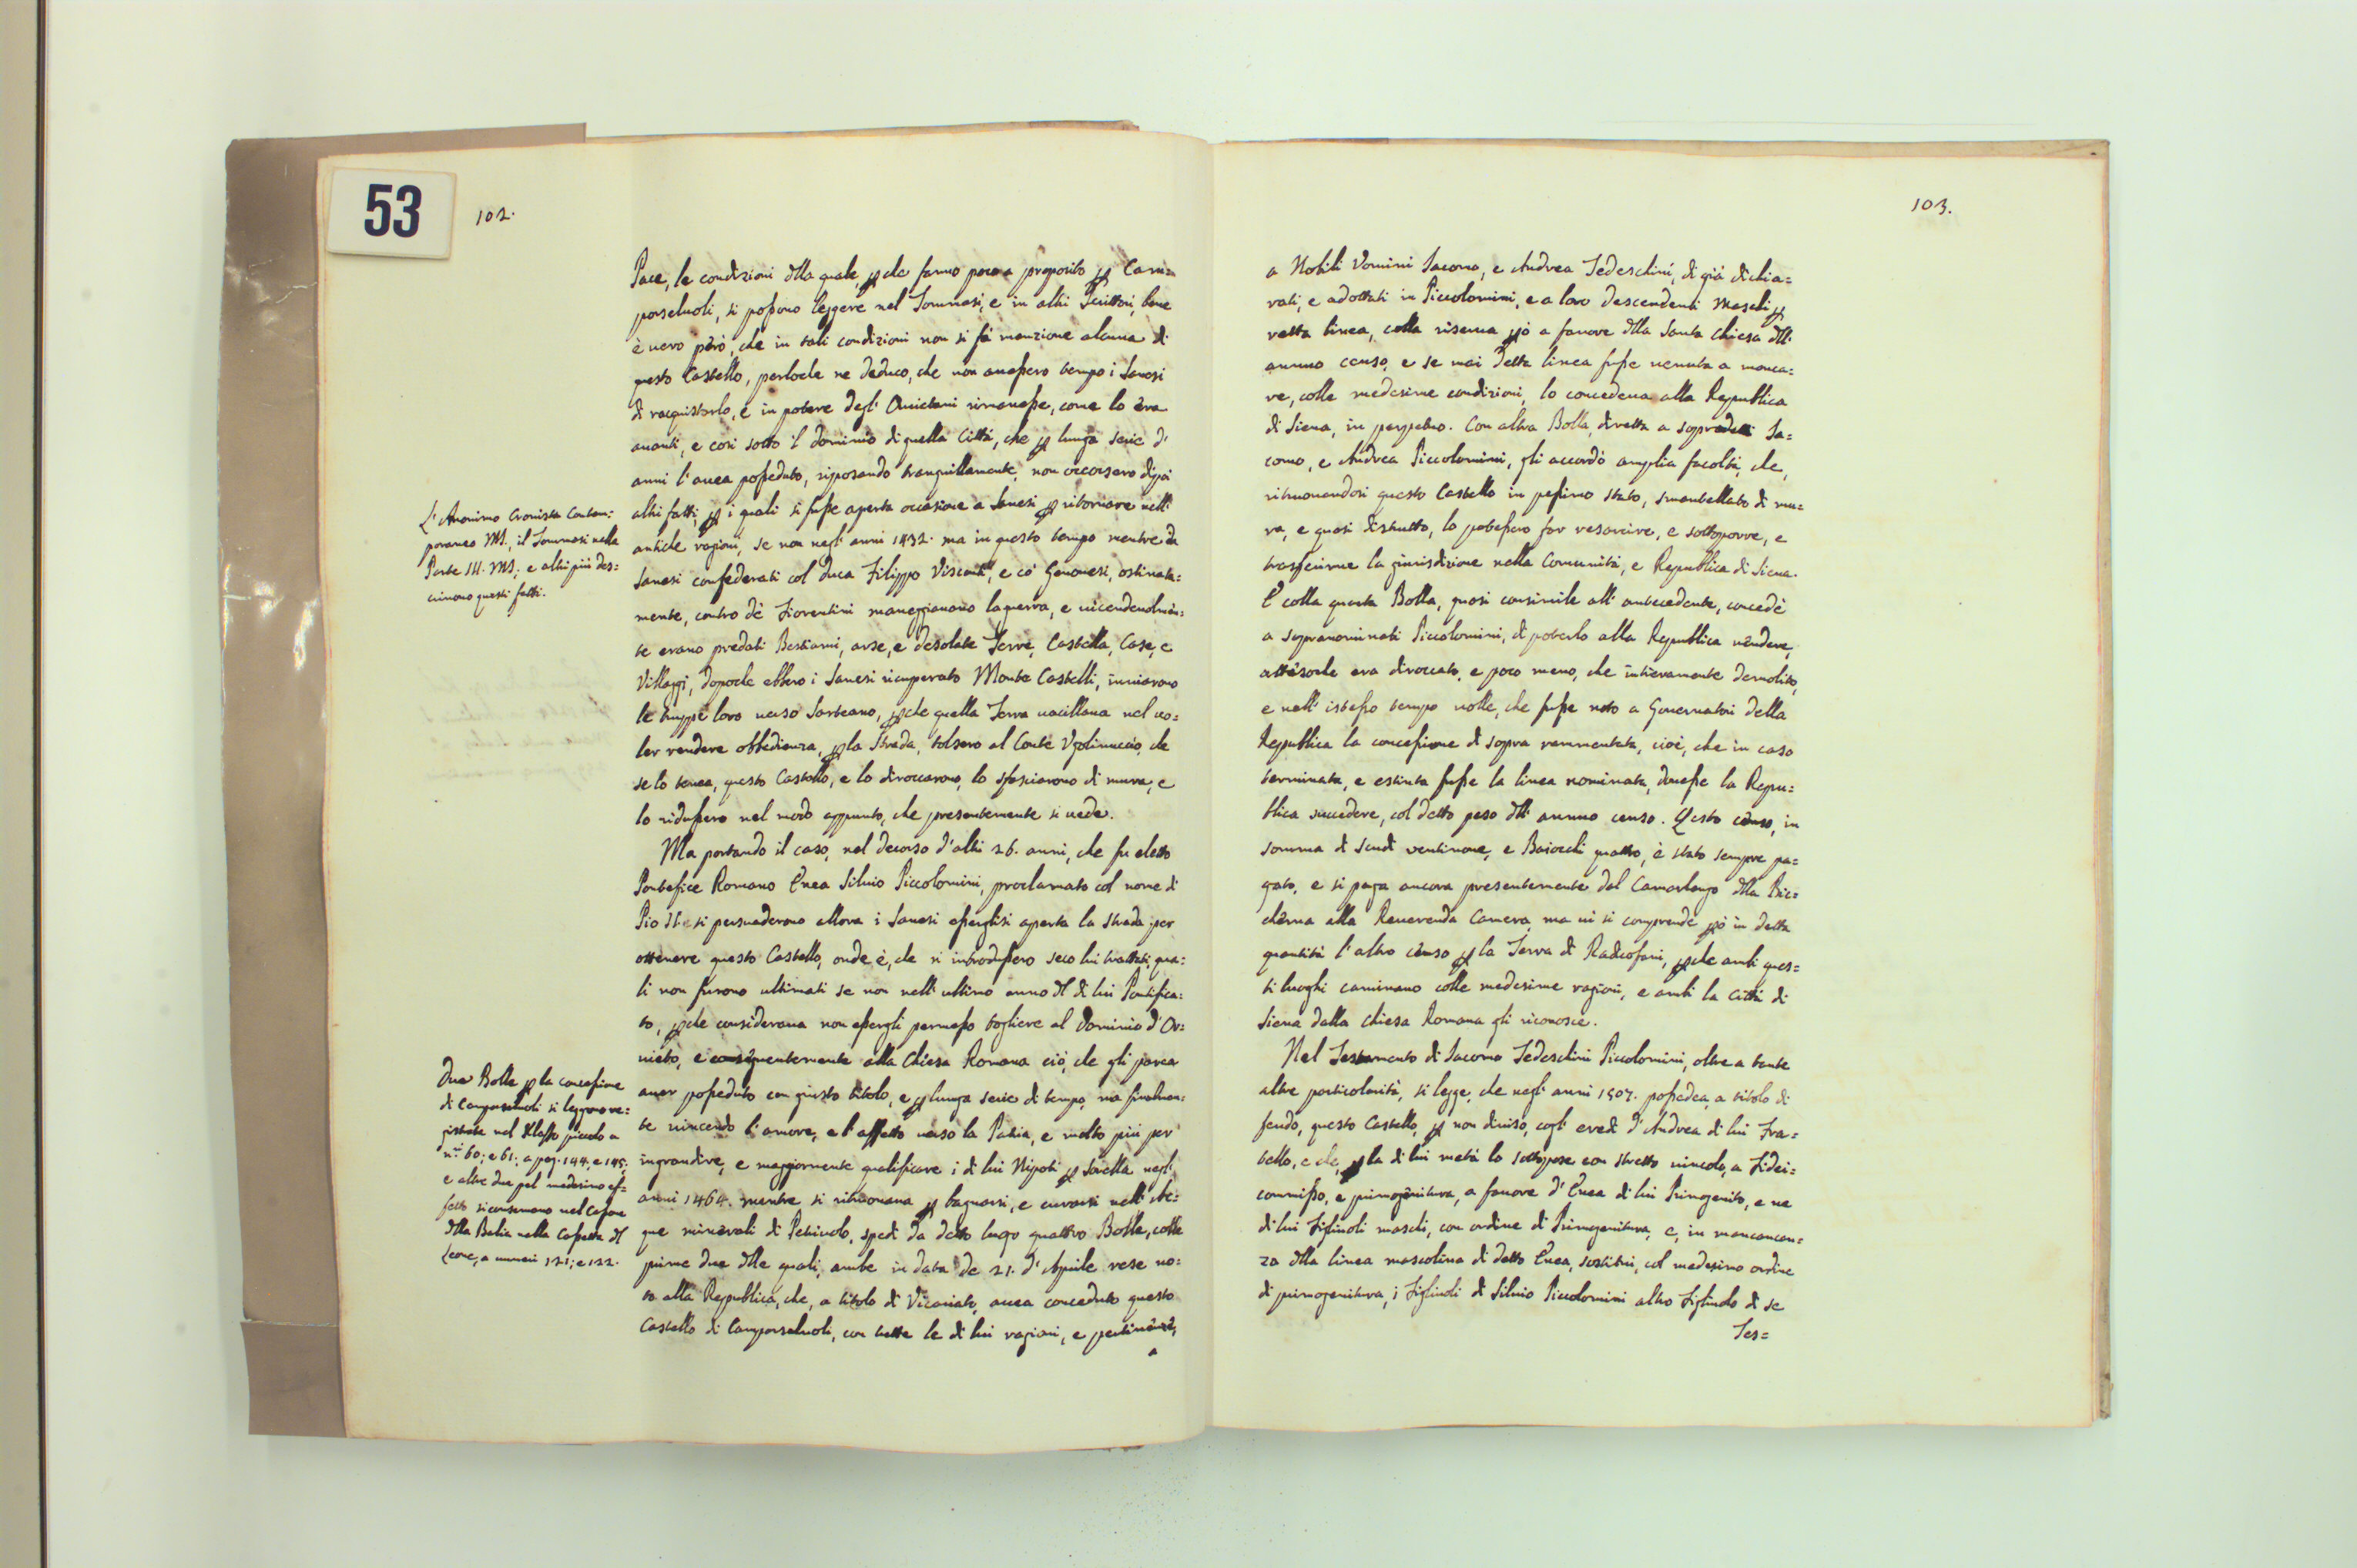 53
102.
Pace, le condizioni dlla quale, pche fanno poco a proposito p Cam=
porselvoli, si possono leggere nel Tommasi, e in altri Scrittori, bene
è vero però, che in tali condizioni non si fà menzione alcuna di
questo Castello, perloche ne deduco, che non avessero tempo i Sanesi
di racquistarlo, e in potere degl' Orvietani rimanesse, come lo era
avanti, e così sotto il dominio di quella Città, che p lunga serie d'
anni l'avea posseduto, riposando tranquillamente, non occorsero dipoi
altri fatti, p i quali si fusse aperta occasione a Sanesi p ritornare nell'
antiche ragioni, se non negl' anni 1432. ma in questo tempo mentre da
Sanesi confederati col Duca Filippo Visconti, e co' Genovesi, ostinata=
mente, contro de' Fiorentini maneggiavano la guerra, e vicendevolmen=
te erano predati Bestiami, arse, e desolate Terre, Castella, Case, e
Villaggi, dopoche ebbero i Sanesi ricuperato Monte Castelli, inviarono
le truppe loro verso Sarteano, pche quella Terra vacillava nel vo=
ler rendere obbedienza, p la strada, tolsero al Conte Vgolinuccio, che
se lo tenea, questo Castello, e lo diroccarono, lo sfasciarono di mura, e
lo ridussero nel modo appunto, che presentemente si vede.
Ma portando il caso, nel decorso d'altri 26. anni, che fu eletto
Pontefice Romano Enea Silvio Piccolomini, proclamato col nome di
Pio II. si persuaderono allora i Sanesi essergli​si aperta la strada per
ottenere questo Castello, onde è, che si introdussero seco lui trattati, qua=
li non furono ultimati se non nell'ultimo anno dl di lui Pontifica=
to, pche considerava non essergli permesso togliere al Dominio d'Or=
vieto, e consequentemente alla Chiesa Romana ciò, che gli parea
aver posseduto con giusto titolo, e p lunga serie di tempo, ma finalmen=
te vincendo l'amore, e l'affetto verso la Patria, e molto più per
ingrandire, e maggiormente qualificare i di lui Nipoti p Sorella negl'
anni 1464. mentre si ritrovava p bagnarsi, e curarsi nell' Ac=
que minerali di Petriuolo, spedì da detto luogo quattro Bolle, colle
prime due dlle quali, ambe in data de 21. d'Aprile rese no=
to alla Republica, che, a titolo di Vicariato, avea conceduto questo
Castello di Camporselvoli, con tutte le di lui ragioni, e pertinenze,
a
L'Anonimo Cronista Contem=
poraneo MS., il Tommasi nella
Parte III. MS., e altri più des=
crivono questi fatti.
Due Bolle p la concessione
di Camporselvoli si leggono re=
gistrate nel Kleffo piccolo a
n.i 60; e 61; a pag. 144. e 145;
e altre due pel medesimo ef=
fetto si conservano nel Cassone
dlla Balia nella Cassetta dl
Leone, a numeri 121; e 122.
103.
a Nobili Vomini Iacomo, e Andrea Tedeschini, di già dichia=
rati, e adottati in Piccolomini, e a loro descendenti Maschi p
retta linea, colla riserva pò a favore dlla Santa Chiesa dll'
annuo censo, e se mai detta linea fusse venuta a manca=
re, colle medesime condizioni, lo concedeva alla Republica
di Siena, in perpetuo. Con altra Bolla, diretta a sopradetti Ia=
como, e Andrea Piccolomini, gli accordò amplia facoltà, che,
ritruovandosi questo Castello in pessimo stato, smantellato di mu=
ra, e quasi distrutto, lo potessero far resarcire, e sottoporre, e
trasferirne la giurisdizione nella Comunità, e Republica di Siena.
E colla quarta Bolla, quasi consimile all' antecedente, concedè
a sopranominati Piccolomini, di poterlo alla Republica vendere,
attesoche era diroccato, e poco meno, che intieramente demolito,
e nell' istesso tempo volle, che fusse noto a Governatori della
Republica la concessione di sopra rammentata, cioè, che in caso
terminata, e estinta fusse la linea nominata, dovesse la Repu=
blica succedere, col detto peso dll' annuo censo. Qesto censo, in
somma di Scudi ventinove, e Baiocchi quattro, è stato sempre pa=
gato, e si paga ancora presentemente dal Camarlengo dlla Bic=
cherna alla Reverenda Camera, ma vi si comprende pò in detta
quantità l'altro censo p la Terra di Radicofani, pche ambi ques=
ti luoghi caminano colle medesime ragioni, e ambi la città di
Siena dalla Chiesa Romana gli riconosce.
Nel Testamento di Iacomo Tedeschini Piccolomini, oltre a tante
altre particolarità, si legge, che negl' anni 1507. possedea, a titolo di
feudo, questo Castello, p non diviso, cogl' eredi d'Andrea di lui Fra=
tello, e che, p la di lui metà lo sottopose con stretto vincolo, a Fidei=
commisso, e primogenitura, a favore d'Enea di lui Primogenito, e ne
di lui Figliuoli maschi, con ordine di Primogenitura, e, in mancanan=
za dlla linea mascolina di detto Enea, sostituì, col medesimo ordine
di primogenitura, i Figliuoli di Silvio Piccolomini altro Figliuolo di se
Tes=